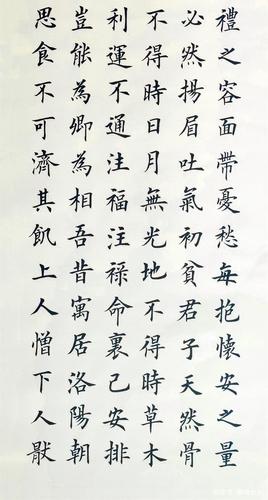 禮之容面帶憂愁每抱懷安之量
必然揚眉吐氣初貧君子天然骨
不得時日月無光地不得時草木
利運不通注福注祿命裏已安排
豈能為卿為相吾昔寓居洛陽朝
思食不可濟其飢上人憎下人厭